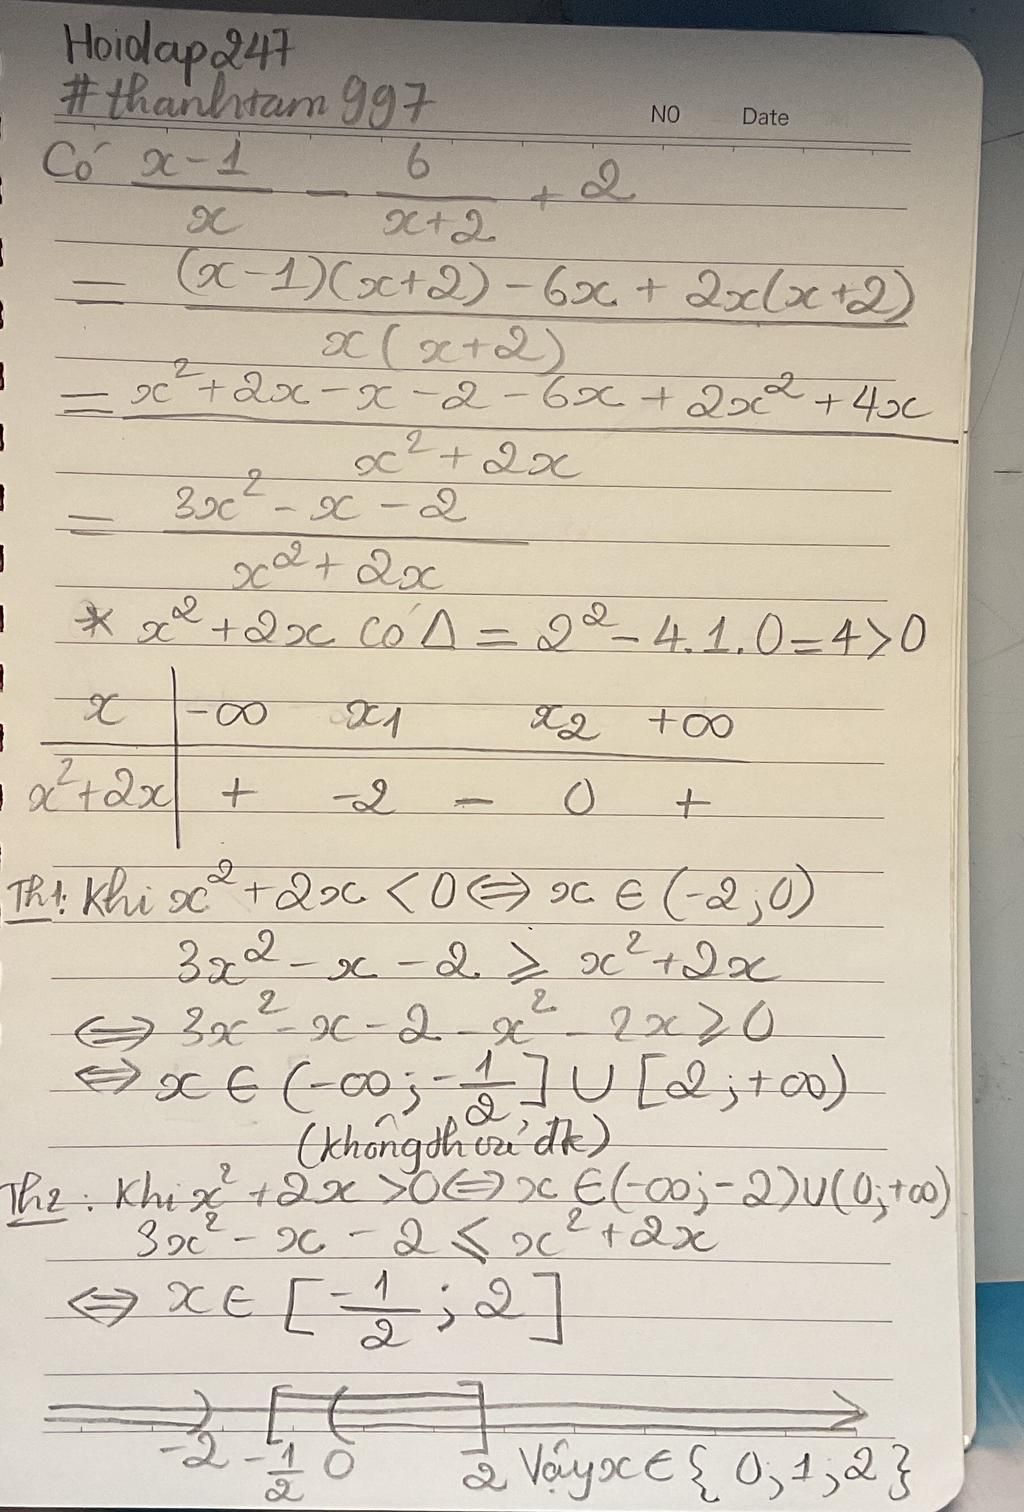 Hoidap247
#thanhtam997
NO Date
Có \frac{x-1}{x} - \frac{6}{x+2} + 2
= \frac{(x-1)(x+2) - 6x + 2x(x+2)}{x(x+2)}
= \frac{x^2+2x-x-2-6x+2x^2+4x}{x^2+2x}
= \frac{3x^2-x-2}{x^2+2x}
* x^2+2x có Δ = 2^2-4.1.0=4>0
x | -∞ x1 x2 +∞
x^2+2x | + -2 - 0 +
Th1: Khi x^2+2x < 0 ⇔ x ∈ (-2;0)
3x^2-x-2 ⩾ x^2+2x
⇔ 3x^2-x-2-x^2-2x ⩾ 0
⇔ x ∈ (-∞; -\frac{1}{2}] ∪ [2;+∞)
(không thoả đk)
Th2: Khi x^2+2x >0 ⇔ x ∈ (-∞;-2) ∪ (0;+∞)
3x^2-x-2 ⩽ x^2+2x
⇔ x ∈ [-\frac{1}{2}; 2]
-2 -\frac{1}{2} 0 2 Vậy x ∈ { 0;1;2 }